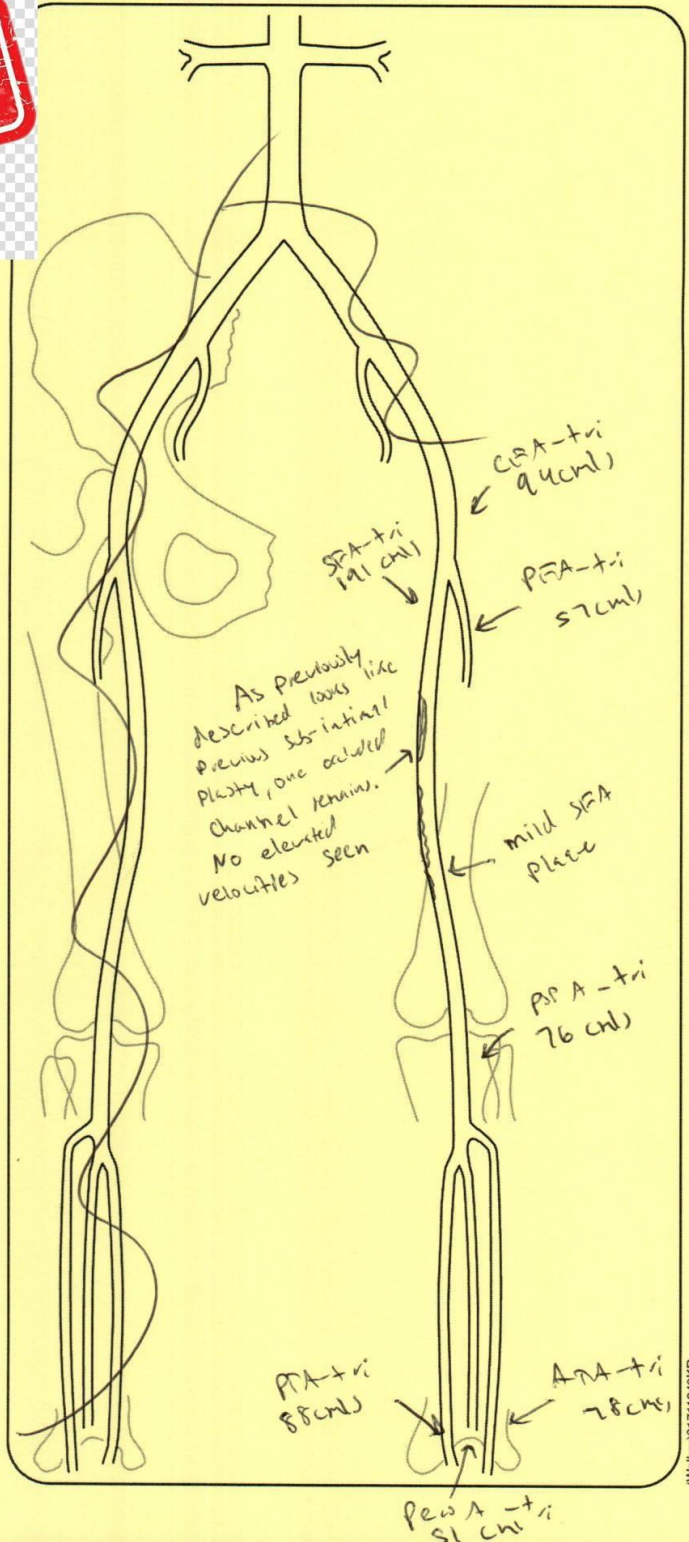 CFA-tri
94cm/s
SFA-tri
191 cm/s
PFA-tri
57cm/s
As previously
described looks like
previous sub-intimal
plasty, one occluded
channel remains.
No elevated
velocities seen
mild SFA
plaque
POP A - tri
76 cm/s
PTA-tri
88cm/s
ATA-tri
78cm/s
Pero A - tri
51 cm/s